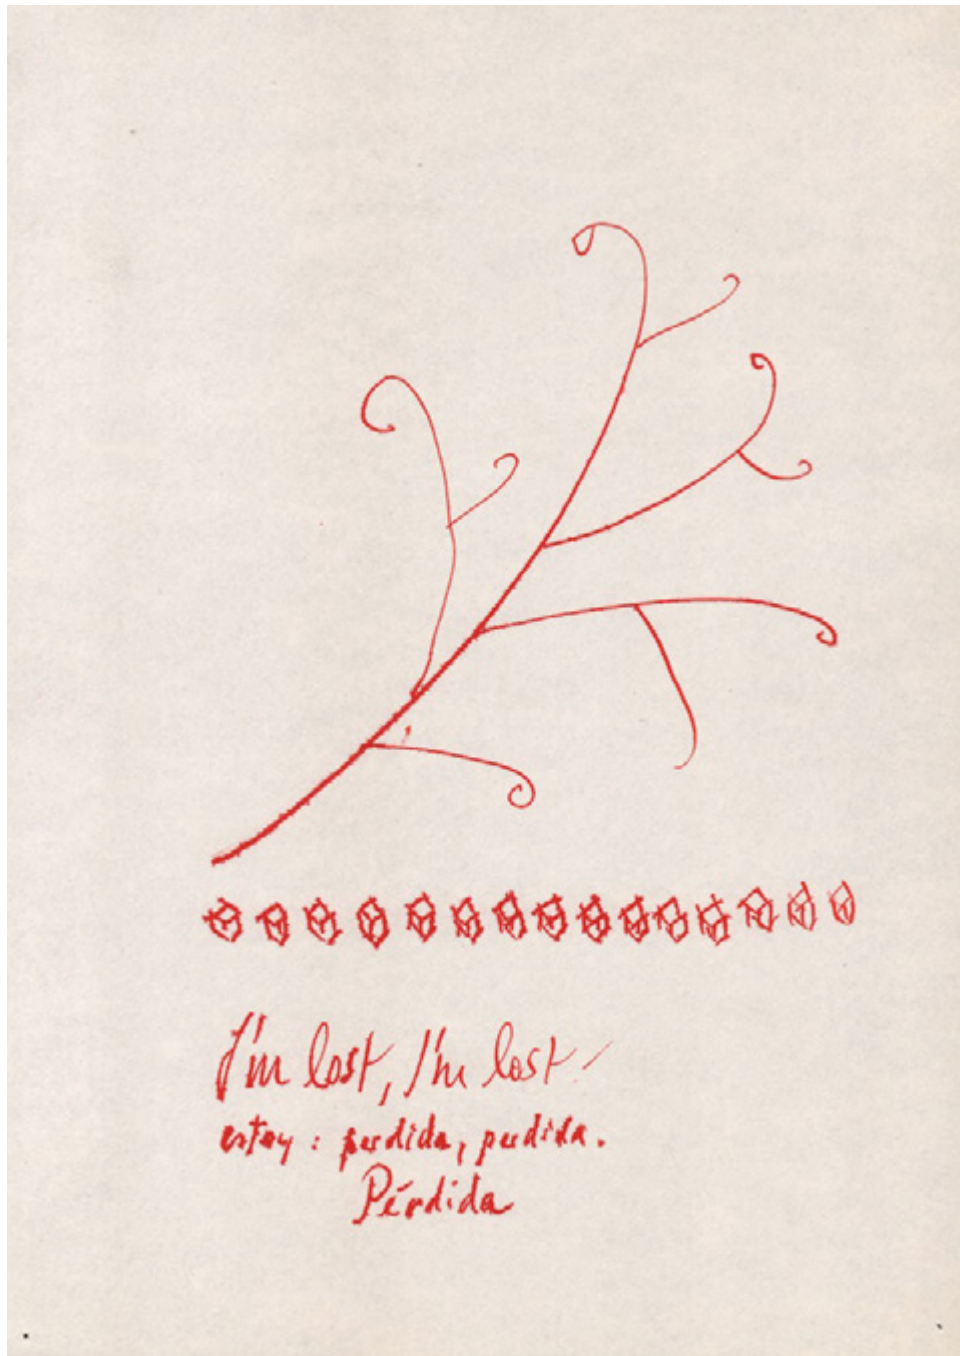 I'm lost, I'm lost!
estoy: perdida, perdida.
Pérdida